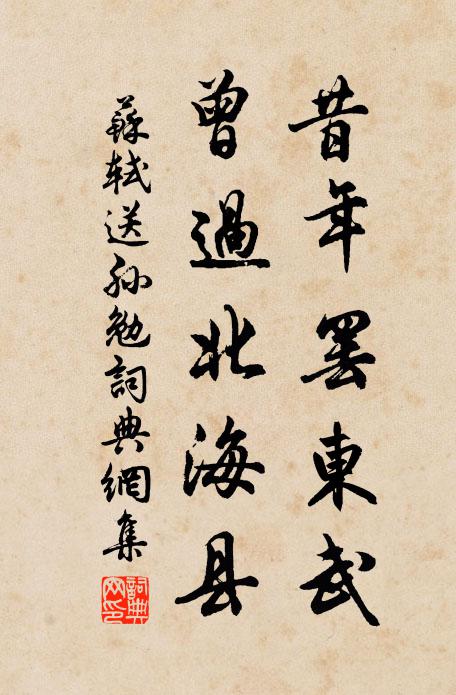 昔年罢東武
曾過北海县
蘇軾送孙勉詞典網集
詞典網印